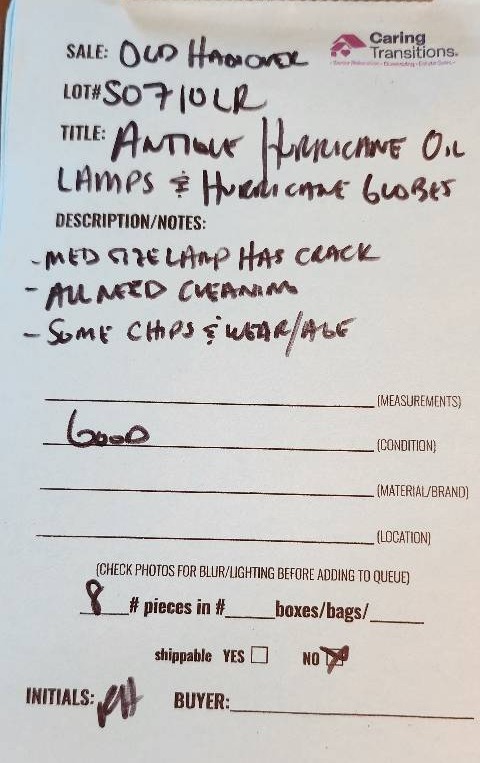 SALE: OLD HANOVER
Caring
Transitions®
LOT# S0710LR
TITLE: ANTIQUE HURRICANE OIL
LAMPS & HURRICANE GLOBES
DESCRIPTION/NOTES:
- MED SIZE LAMP HAS CRACK
- ALL NEED CLEANING
- SOME CHIPS & WEAR/AGE
(MEASUREMENTS)
GOOD (CONDITION)
(MATERIAL/BRAND)
(LOCATION)
(CHECK PHOTOS FOR BLUR/LIGHTING BEFORE ADDING TO QUEUE)
8 # pieces in # boxes/bags/
shippable YES NO
INITIALS: BUYER: